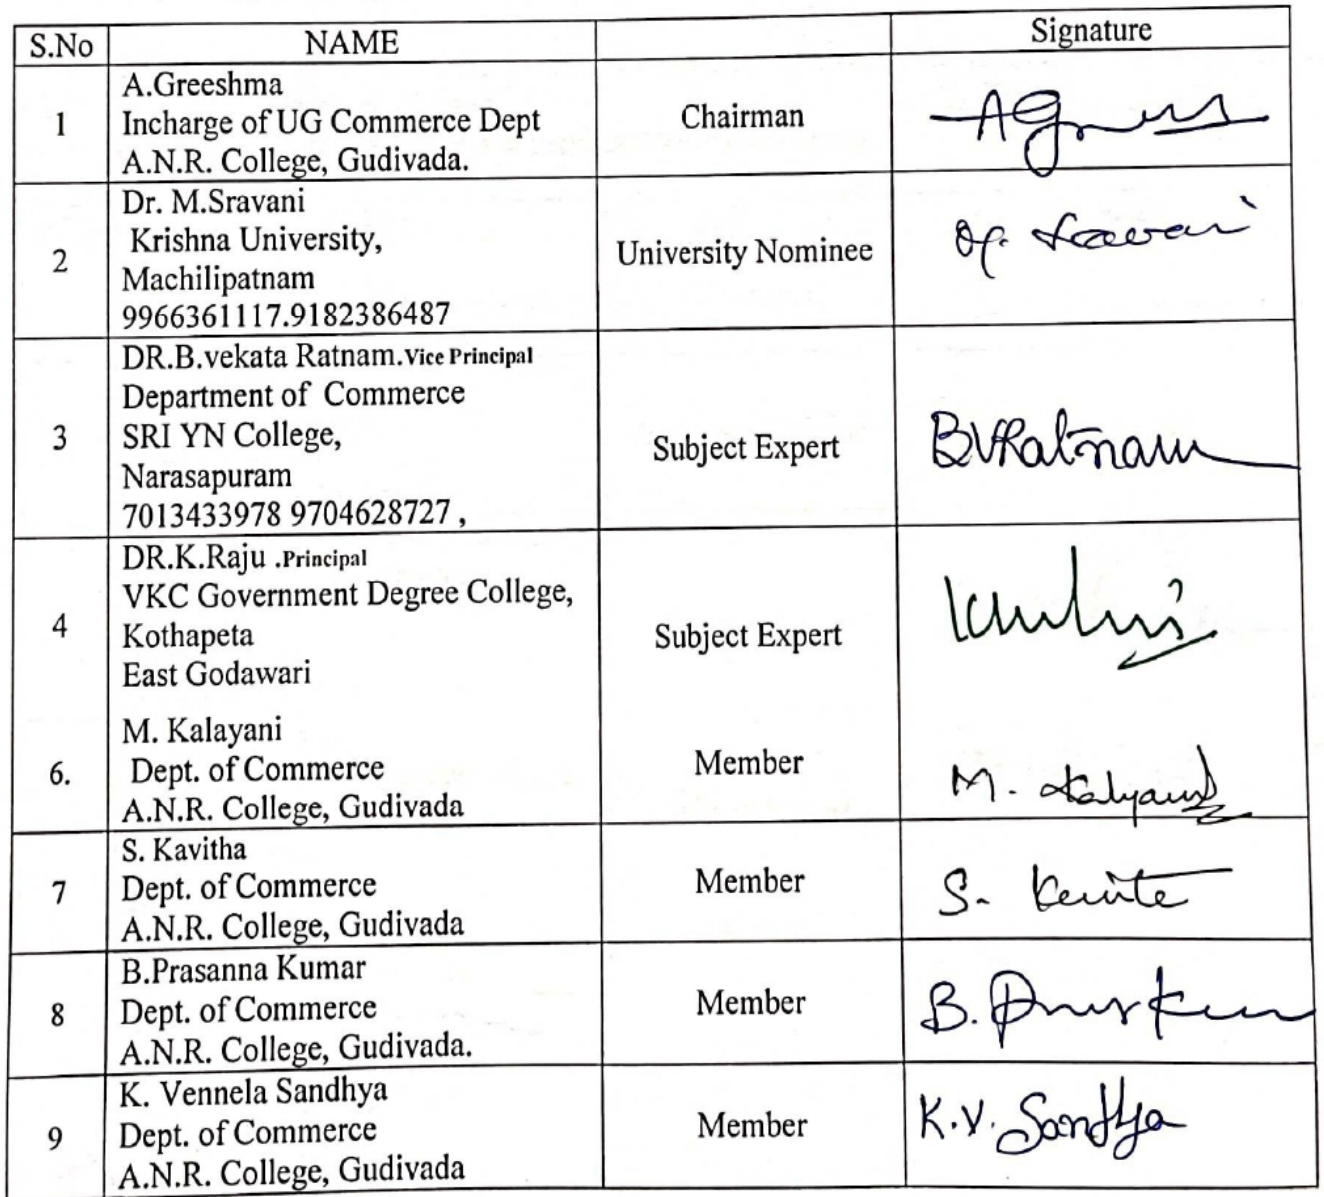 S.No NAME Signature
1
A.Greeshma
Incharge of UG Commerce Dept
A.N.R. College, Gudivada.
Chairman
2
Dr. M.Sravani
Krishna University,
Machilipatnam
9966361117.9182386487
University Nominee
3
DR.B.vekata Ratnam.Vice Principal
Department of Commerce
SRI YN College,
Narasapuram
7013433978 9704628727 ,
Subject Expert
BVRatnam
4
DR.K.Raju .Principal
VKC Government Degree College,
Kothapeta
East Godawari
Subject Expert
6.
M. Kalayani
Dept. of Commerce
A.N.R. College, Gudivada
Member
M. Kalyani
7
S. Kavitha
Dept. of Commerce
A.N.R. College, Gudivada
Member
S.
8
B.Prasanna Kumar
Dept. of Commerce
A.N.R. College, Gudivada.
Member
B.
9
K. Vennela Sandhya
Dept. of Commerce
A.N.R. College, Gudivada
Member
K.V. Sandhya